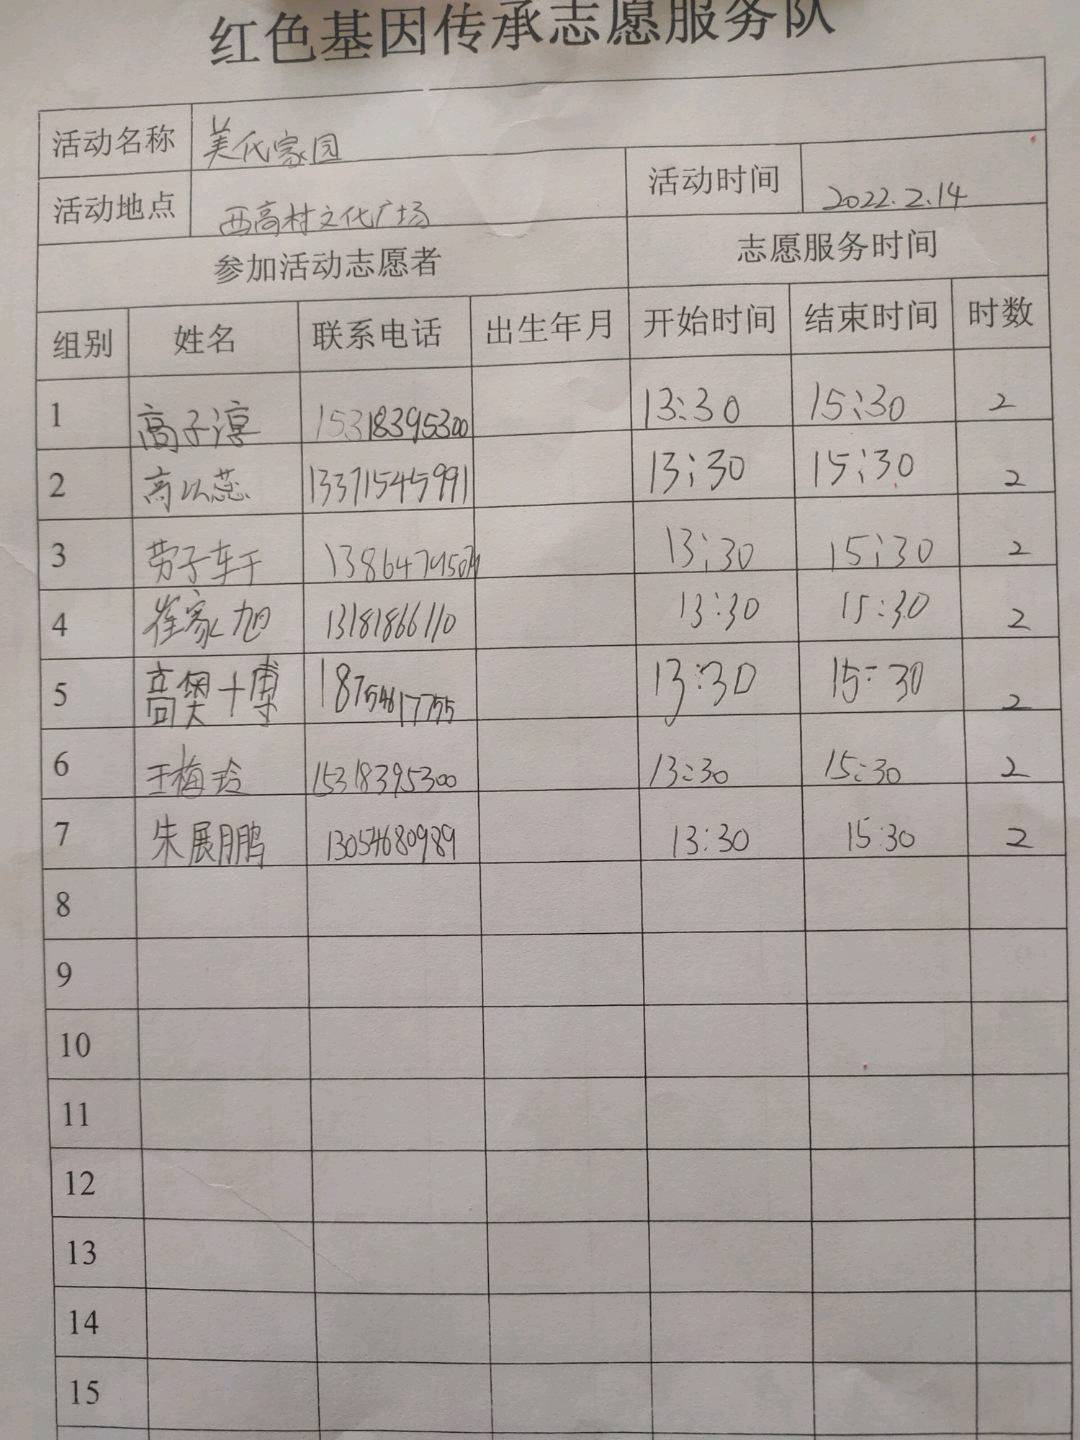 红色基因传承志愿服务队
活动名称 美化家园
活动地点 西高村文化广场 活动时间 2022.2.14
参加活动志愿者 志愿服务时间
组别 姓名 联系电话 出生年月 开始时间 结束时间 时数
1 高子淳 15318395300 13:30 15:30 2
2 高以蕊 13371545991 13:30 15:30 2
3 劳子轩 13:30 15:30 2
4 崔家旭 13181866110 13:30 15:30 2
5 高奥博 18754617755 13:30 15:30 2
6 王梅玲 15318395300 13:30 15:30 2
7 朱展鹏 13054680989 13:30 15:30 2
8
9
10
11
12
13
14
15